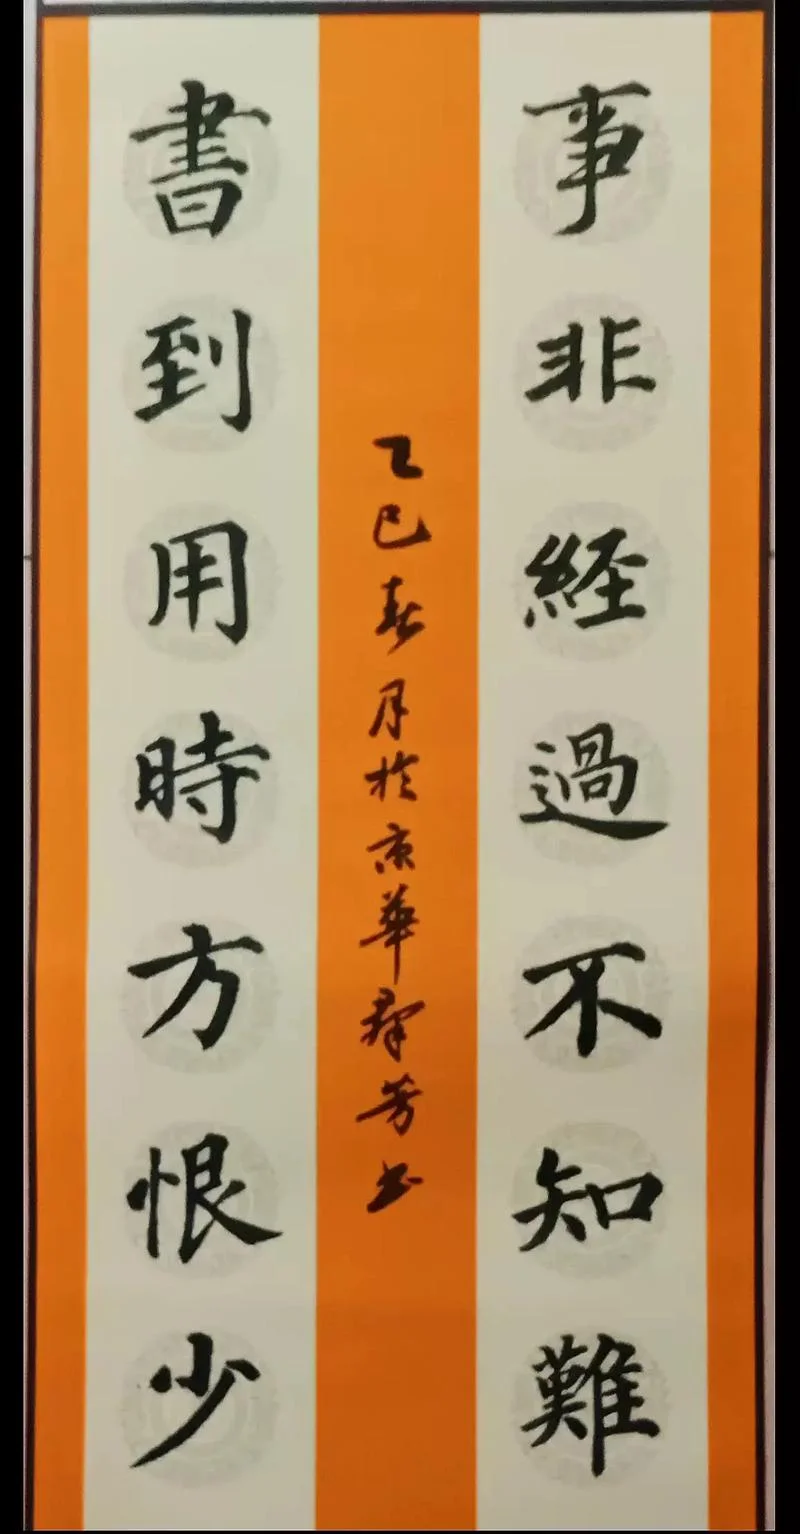 事非經過不知難
乙巳春月於京華群芳书
書到用時方恨少